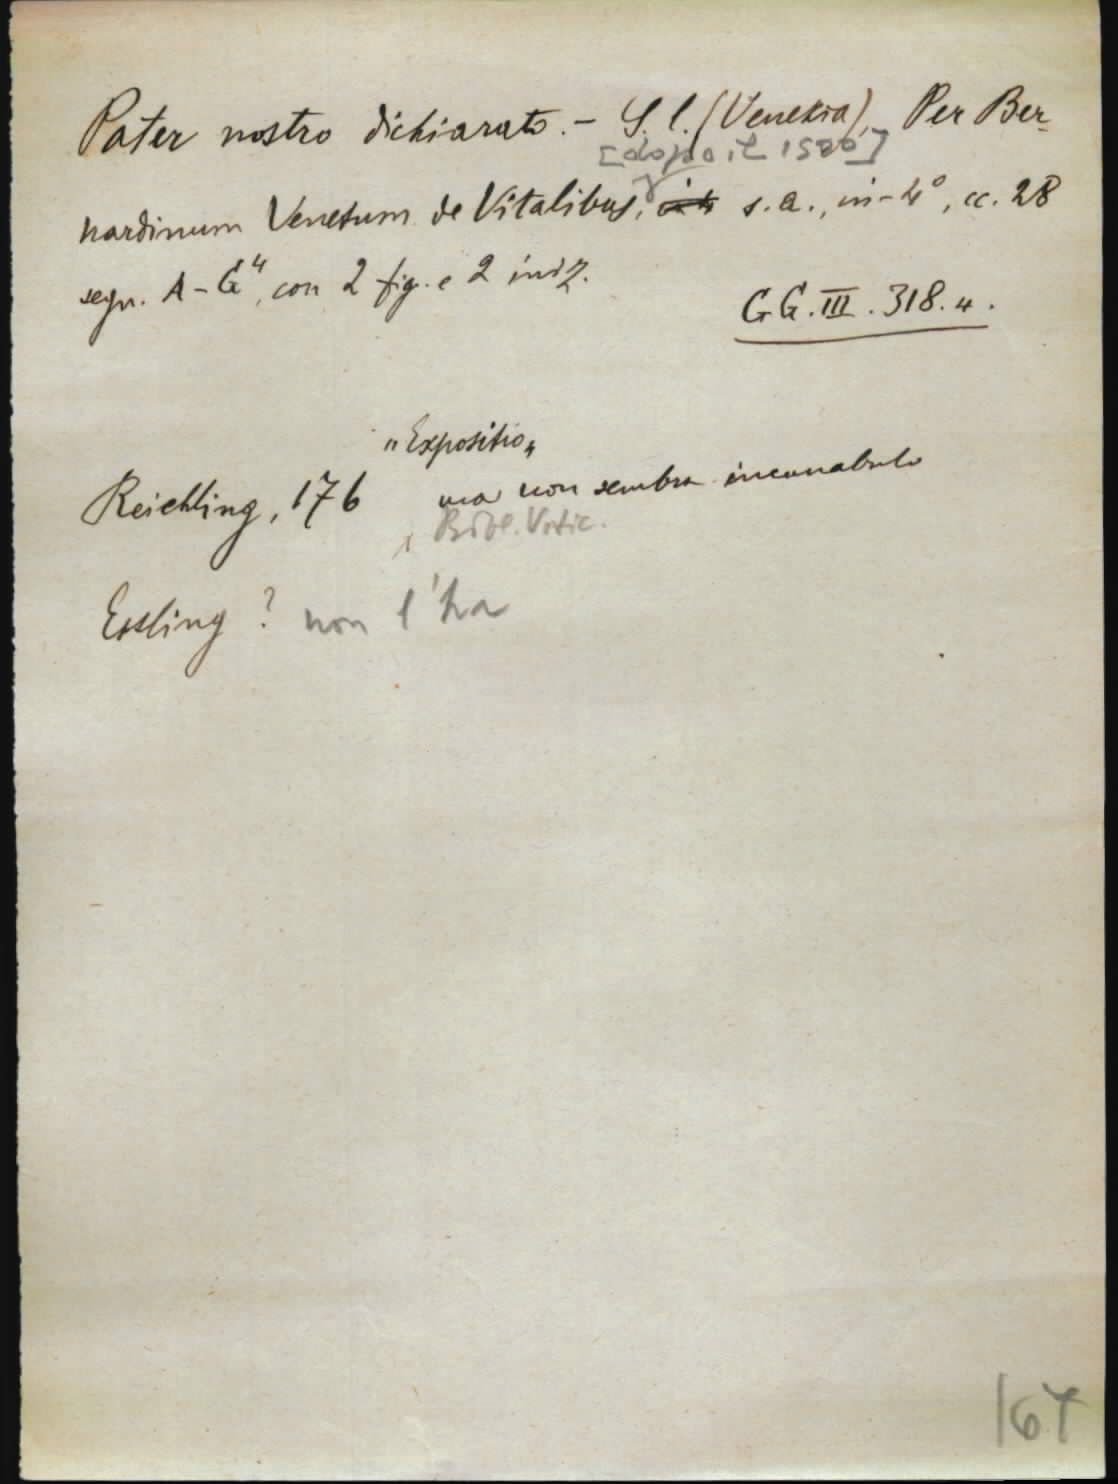 Pater nostro dichiarato. – S. l. (Venezia), Per Ber-
[dopo il 1500]
nardinum Venetum de Vitalibus, s.a., in-4°, cc. 28
segn. A-G⁴, con 2 fig. e 2 iniz.
GG.III.318.4.
"Expositio"
Reichling, 176 ma non sembra incunabulo
Bibl. Vatic.
Essling ? non l'ha
167